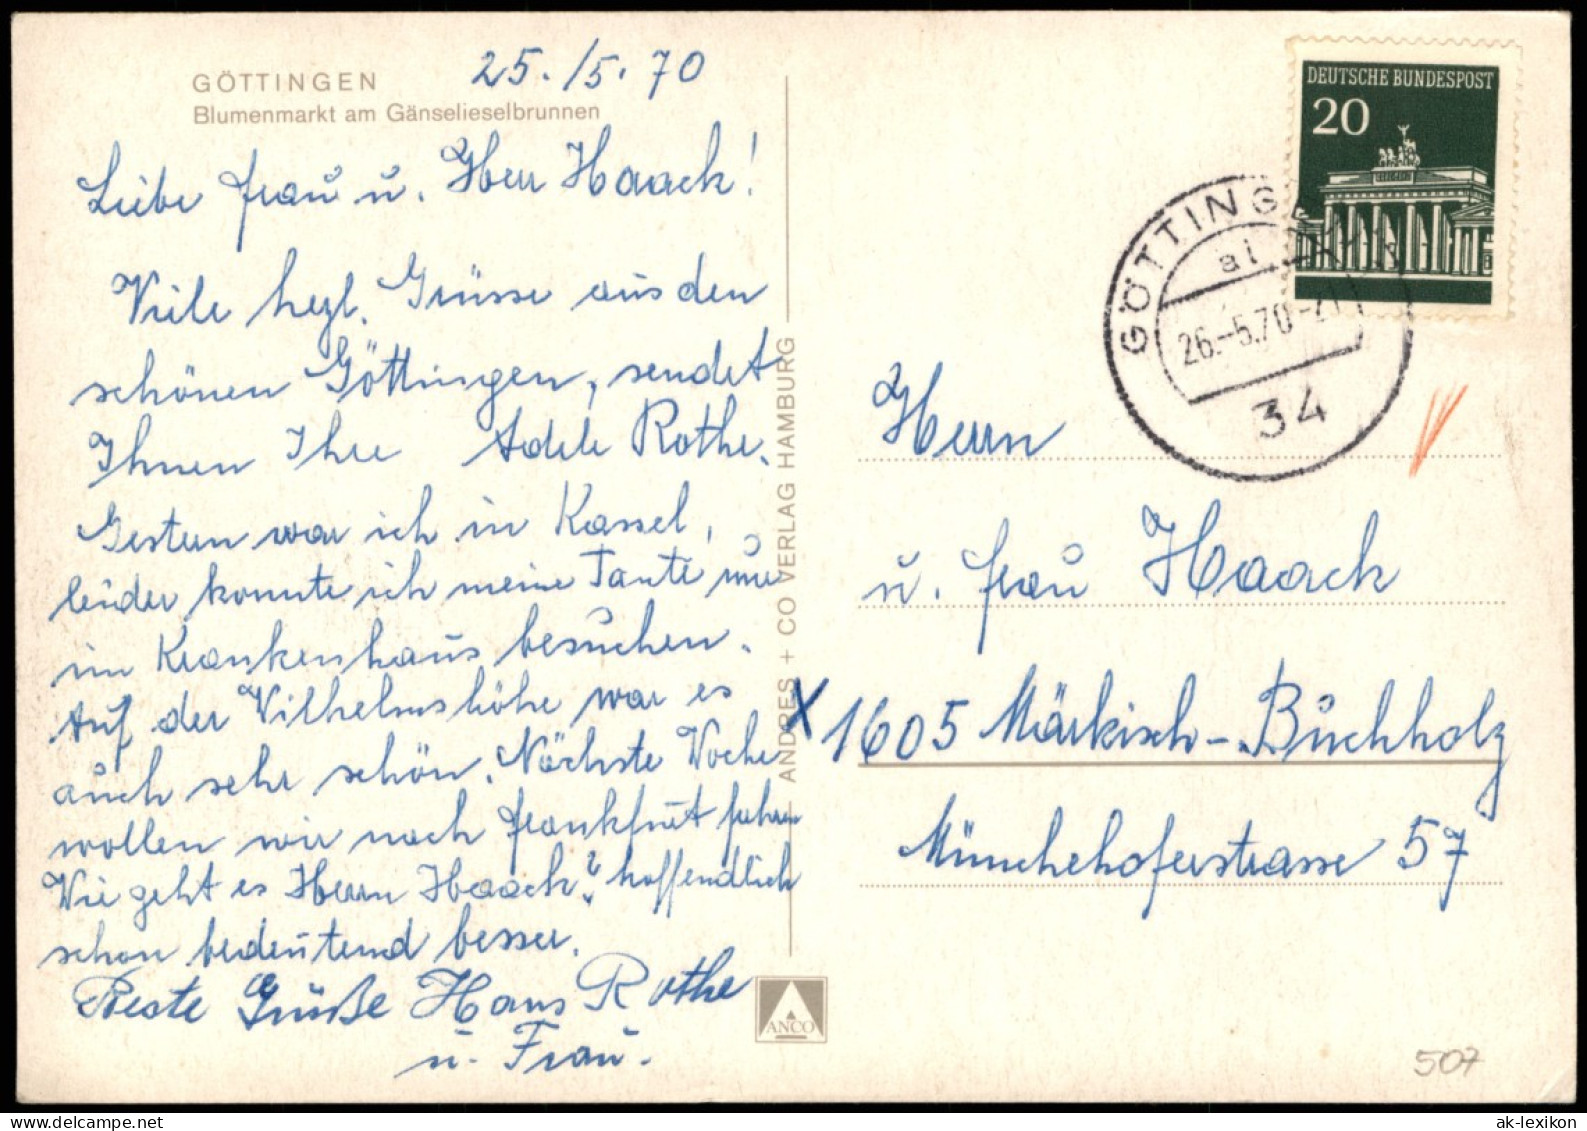 GÖTTINGEN
Blumenmarkt am Gänselieselbrunnen
25./5.70
Liebe Frau u. Herr Haack!
Viele hezl. Grüsse aus den
schönen Göttingen, sendet
Ihnen Ihre Adele Rothe.
Gestern war ich in Kassel,
leider konnte ich meine Tante nur
im Krankenhaus besuchen.
Auf der Wilhelmshöhe war es
auch sehr schön. Nächste Woche
wollen wir nach Frankfurt fahren
Wie geht es Herrn Haack? hoffendlich
schon bedeutend besser.
Beste Grüße Hans Rothe
u. Frau.
ANDRES + CO VERLAG HAMBURG
ANCO
DEUTSCHE BUNDESPOST
20
GÖTTING
a1
26.-5.70-21
34
Herrn
u. Frau Haack
X 1605 Märkisch-Buchholz
Münchehoferstrasse 57
507
ak-lexikon